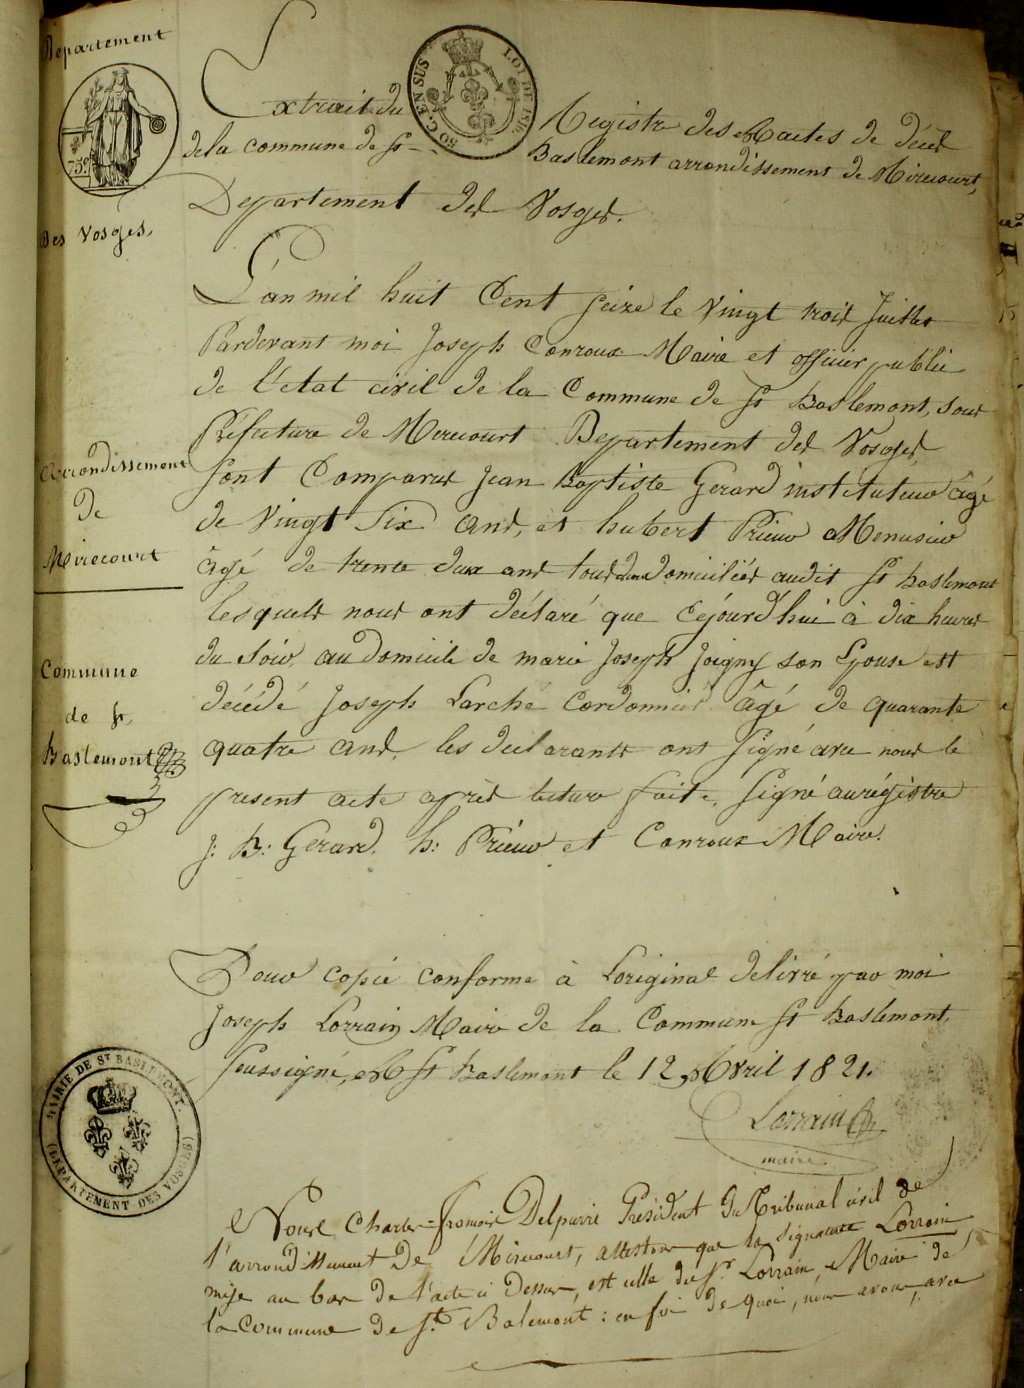 Departement
75c
Des Vosges,
Arrondissement
de
Mirecourt
Commune
de St
Baslemont
50 C. EN SUS
LOI DE 1816
Extrait du Registre des Actes de décès
de la commune de St Baslemont arrondissement de Mirecourt,
Departement des Vosges.
L'an mil huit Cent Seize le Vingt trois Juillet
Pardevant moi Joseph Conroux Maire et officier public
de l'état civil de la Commune de St Baslemont, sous
Préfecture de Mirecourt Departement des Vosges
sont Comparus Jean Baptiste Gerard instituteur âgé
de Vingt Six ans, et hubert Prieur Menusier
âgé de trente deux ans tous deux domiciliés audit St baslemont
lesquels nous ont déclaré que Cejourd'hui à dix heures
du Soir, au Domicile de marie Joseph Joigny son Epouse est
décédé Joseph Larché Cordonnier âgé de quarante
quatre ans, les déclarants ont Signé avec nous le
present acte après lecture faite, Signé au régistre
J: B: Gerard. h: Prieur et Conroux Maire.
Pour copie conforme à Loriginal delivré par moi
Joseph Lorrain Maire de la Commune St Baslemont,
Soussigné, à St Baslemont le 12 Avril 1821.
Lorrain
maire
MAIRIE DE ST BASLEMONT.
(DÉPARTEMENT DES VOSGES)
Nous Charles-François Delpierre Président du Tribunal civil de
l'arrondissement de Mirecourt, attestons que la signature Lorrain
mise au bas de l'acte ci Dessus, est celle du Sr. Lorrain, Maire de
la Commune de St. Balemont: en foi de quoi, nous avons, avec